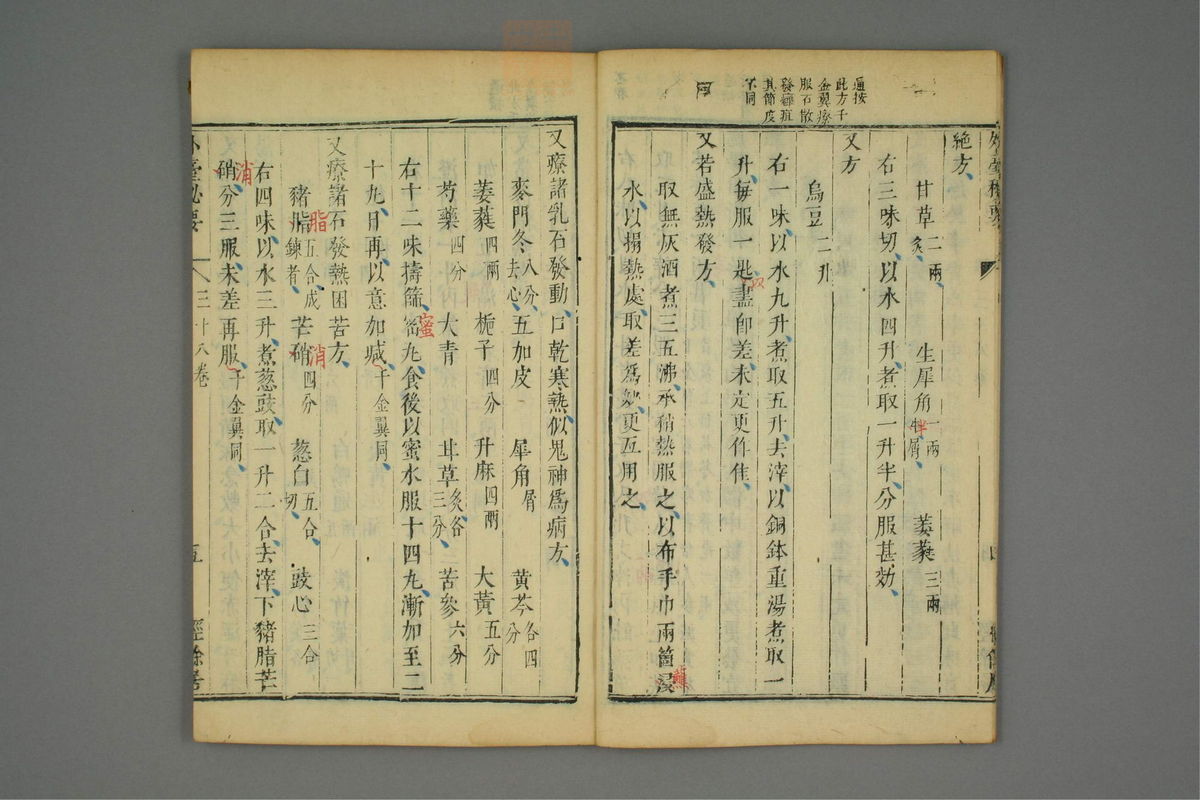 絶方
甘草二兩炙 生犀角一兩屑 萎蕤三兩
右三味切以水四升煮取一升半分服甚効
又方
烏豆二升
右一味以水九升煮取五升去滓以銅鉢重湯煮取一
升每服一匙盡卽差未定更作佳
又若盛熱發方
取無灰酒煮三五沸承稍熱服之以布手巾兩箇
水以搨熱處取差爲妙更互用之
此方千
金翼療
服石散
不同
又療諸乳石發動口乾寒熱似鬼神爲病方
麥門冬八分去心 五加皮 犀角屑 黃芩各四分
萎蕤四兩 梔子四分 升麻四兩 大黃五分
芍藥四分 大青 甘草炙各三分 苦參六分
右十二味擣篩蜜丸食後以蜜水服十四丸漸加至二
十丸日再以意加減千金翼同
又療諸石發熱困苦方
豬脂五合成鍊者 芒硝四分 葱白五合切 豉心三合
右四味以水三升煮葱豉取一升二合去滓下豬脂芒
硝分三服未差再服千金翼同
外臺秘要 三十八卷 五 經餘居